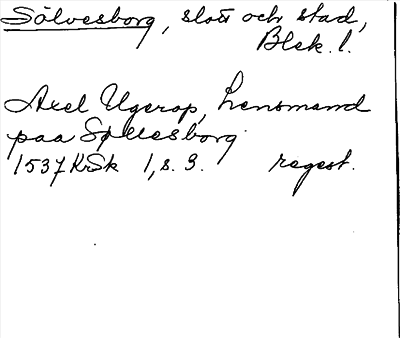 Sölvesborg, slott och stad,
Blek. l.
Axel Ugerop, Lensmand
paa Søluesborg
1537 KrSk 1, s. 9. regest.